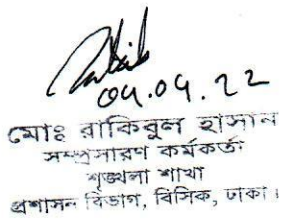 04.09.22
মোঃ রাকিবুল হাসান
সম্প্রসারণ কর্মকর্তা
শৃঙ্খলা শাখা
প্রশাসন বিভাগ, বিসিক, ঢাকা।